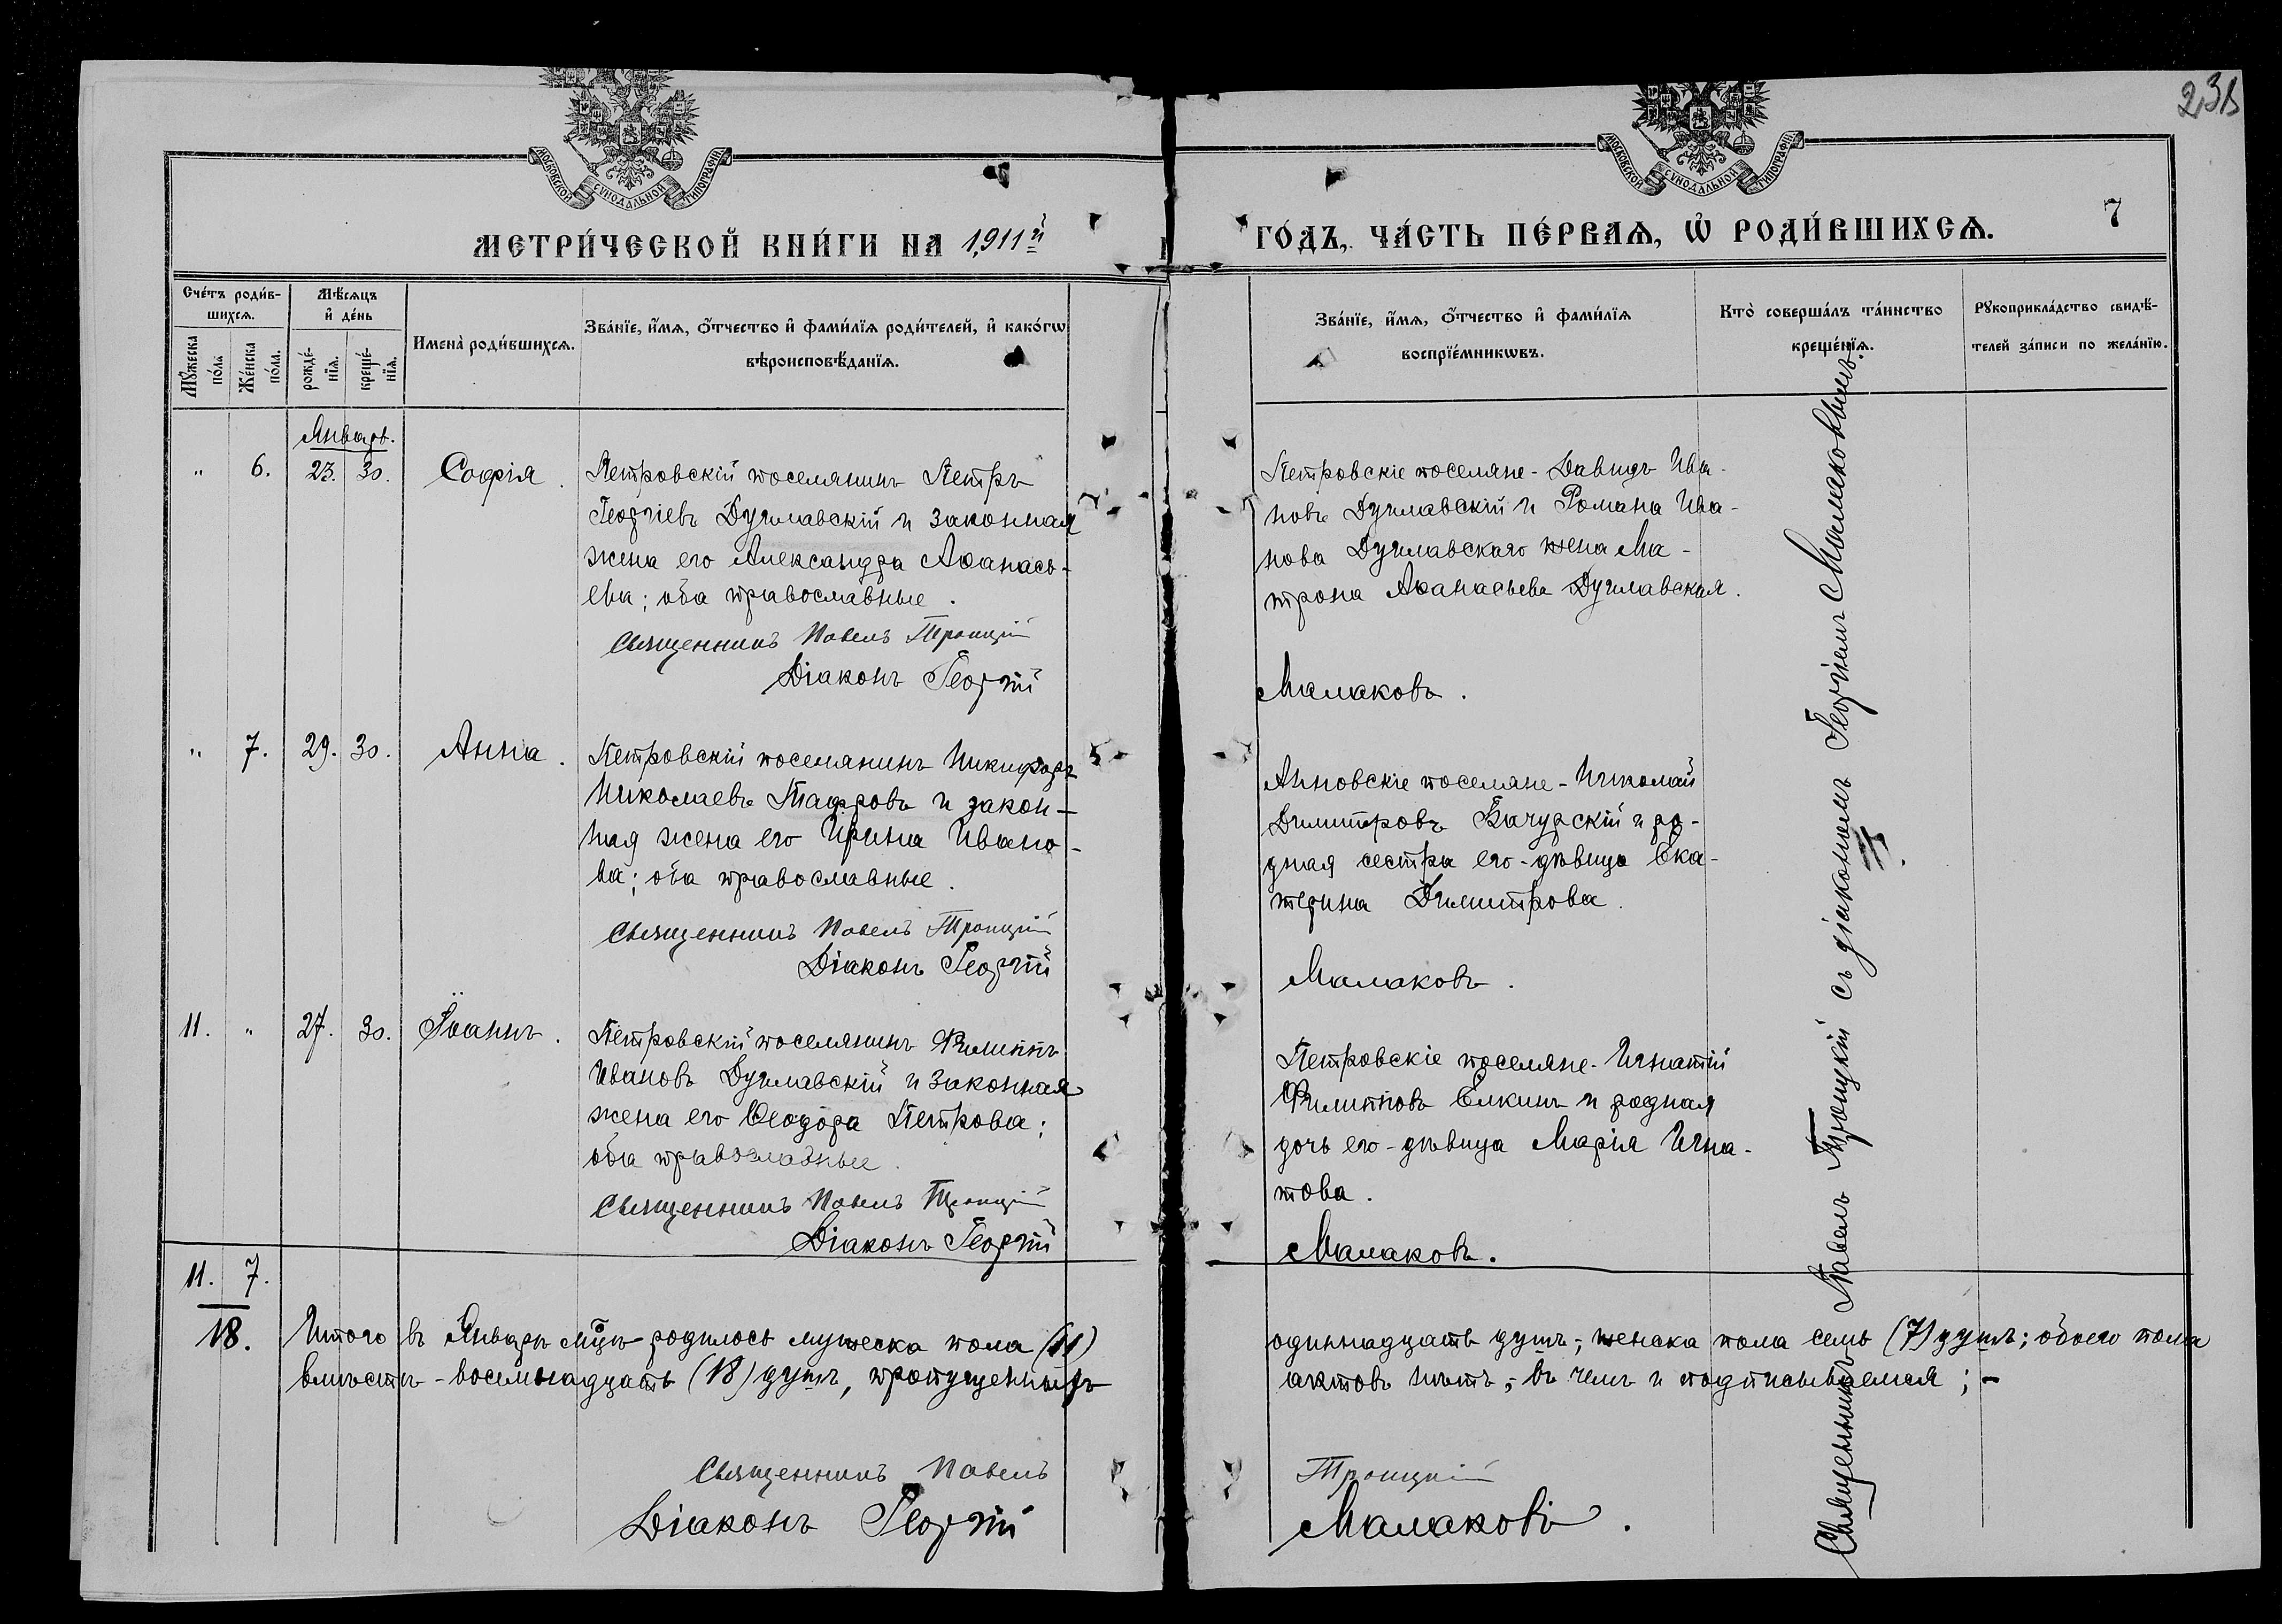 231
МОСКОВСКОЙ СѴНОДАЛЬНОЙ ТИПОГРАФІИ
МОСКОВСКОЙ СѴНОДАЛЬНОЙ ТИПОГРАФІИ
МЕТРИ́ЧЕСКОЙ КНИ́ГИ НА 1911й
ГО́ДЪ, ЧА́СТЬ ПЕ́РВАѦ, Ѡ҆ РОДИ́ВШИХСѦ.
7
Сче́тъ роди́в-
шихсѧ.
Мꙋ́жеска по́ла
Же́нска по́ла.
Мѣ́сѧцъ
и҆ де́нь
рожде́-
нїѧ.
креще́-
нїѧ.
Имена̀ роди́вшихсѧ.
Зва́нїе, и҆́мѧ, ѻ҆́тчество и҆ фами́лїѧ роди́телей, и҆ како́гѡ
вѣроисповѣ́данїѧ.
Зва́нїе, и҆́мѧ, ѻ҆́тчество и҆ фами́лїѧ
воспрїе́мникѡвъ.
Кто̀ соверша́лъ та́инство
креще́нїѧ.
Рꙋкоприкла́дство свидѣ́-
телей за́писи по жела́нїю.
Январь.
" 6. 23. 30. Софія.
Петровскій поселянинъ Петръ
Георгіевъ Дуглавскій и законная
жена его Александра Аѳанась-
ева; оба православные.
Священникъ Павелъ Троицкій
Діаконъ Георгій
Петровскіе поселяне - Давидъ Ива-
новъ Дуглавскій и Романа Ива-
нова Дуглавскаго жена Ма-
трона Аѳанасьева Дуглавская.
Малаковъ.
" 7. 29. 30. Анна.
Петровскій поселянинъ Никифоръ
Николаевъ Тафровъ и закон-
ная жена его Ирина Ивано-
ва; оба православные.
Священникъ Павелъ Троицкій
Діаконъ Георгій
Анновскіе поселяне - Николай
Димитровъ Бачурскій и ро-
дная сестра его - дѣвица Ека-
терина Димитрова.
Малаковъ.
11. " 27. 30. Іоаннъ.
Петровскій поселянинъ Филиппъ
Ивановъ Дуглавскій и законная
жена его Ѳеодора Петрова;
оба православные.
Священникъ Павелъ Троицкій
Діаконъ Георгій
Петровскіе поселяне - Игнатій
Филипповъ Елкинъ и родная
дочь его - дѣвица Марія Игна-
това.
Малаковъ.
Священникъ Павелъ Троицкій съ діакономъ Георгіемъ Малаковымъ.
11. 7.
18.
Итого въ Январѣ мцѣ родилось мужеска пола (11)
одиннадцать душъ; женска пола семь (7) душъ; обоего пола
вмѣстѣ - восемьнадцать (18) душъ, пропущенныхъ
актовъ нѣтъ; въ чемъ и подписываемся; -
Священникъ Павелъ
Троицкій
Діаконъ Георгій
Малаковъ.